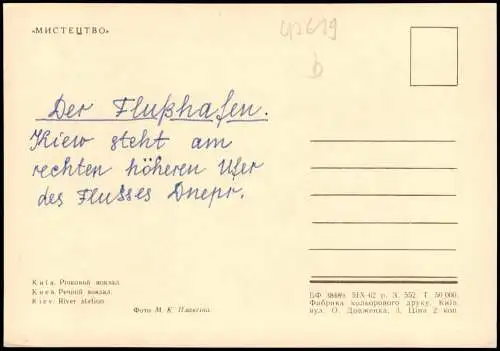 «МИСТЕЦТВО»
42619
b
Der Flußhafen.
Kiew steht am
rechten höheren Ufer
des Flusses Dnepr.
Київ. Річковий вокзал.
Киев. Речной вокзал.
Kiev. River station.
Фото М. К.
БФ 5/IX-62 р. З. 552. Т 50 000.
Фабрика кольорового друку. Київ,
вул. О. Довженка, 3. Ціна 2 коп.